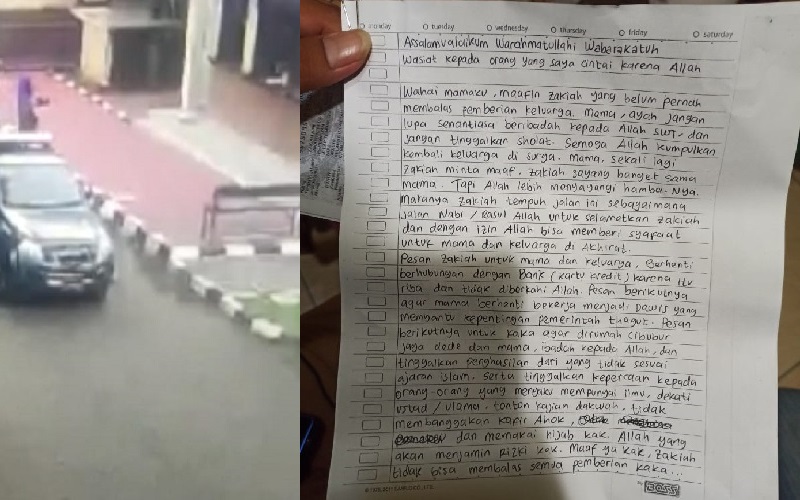 monday tuesday wednesday thursday friday saturday
Assalamualaikum Warahmatullahi Wabarakatuh
Wasiat kepada orang yang saya cintai karena Allah
Wahai mamaku, maafin zakiah yang belum pernah
membalas pemberian keluarga. Mama, ayah jangan
lupa senantiasa beribadah kepada Allah SWT, dan
jangan tinggalkan sholat. Semoga Allah kumpulkan
kembali keluarga di surga. Mama, sekali lagi
zakiah minta maaf. zakiah sayang banget sama
mama. Tapi Allah lebih menyayangi hamba-Nya.
makanya zakiah tempuh jalan ini sebagaimana
jalan Nabi / Rasul Allah untuk selametkan zakiah
dan dengan izin Allah bisa memberi syafaat
untuk mama dan keluarga di Akhirat.
Pesan zakiah untuk mama dan keluarga, Berhenti
berhubungan dengan Bank (kartu kredit) karena itu
riba dan tidak diberkahi Allah. Pesan berikutnya
agar mama berhenti bekerja menjadi Dawis yang
membantu kepentingan pemerintah thagut. Pesan
berikutnya untuk kaka agar dirumah cibubur
jaga dede dan mama, ibadah kepada Allah, dan
tinggalkan penghasilan dari yang tidak sesuai
ajaran islam. serta tinggalkan kepercayaan kepada
orang-orang yang mengaku mempunyai ilmu, dekati
ustad / ulama. tonton kajian dakwah, tidak
membanggakan kafir Ahok,
dan memakai hijab kak. Allah yang
akan menjamin Rizki kak. Maaf ya kak, zakiah
tidak bisa membalas semua pemberian kaka...